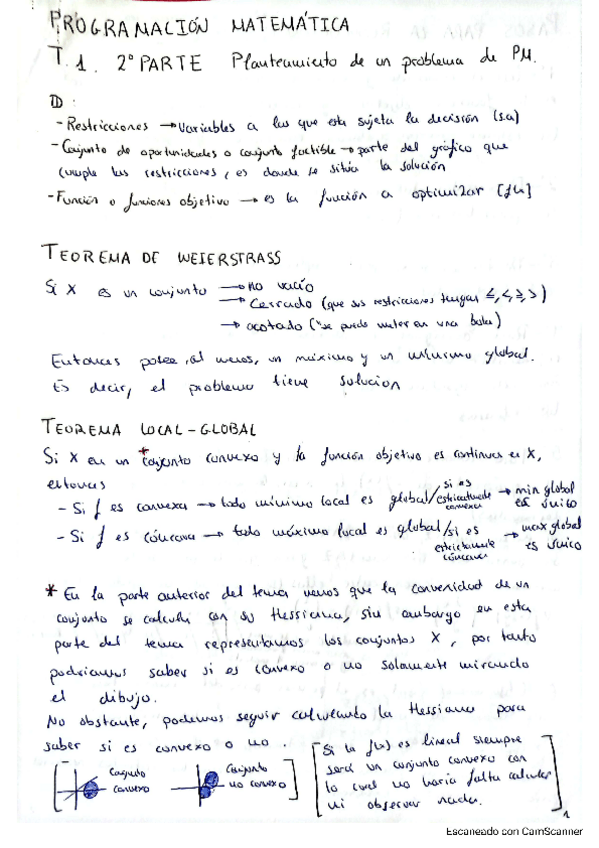 PROGRAMACIÓN MATEMÁTICA
T.1. 2º PARTE Planteamiento de un problema de PM.
D:
- Restricciones → variables a las que esta sujeta la decisión (s.a)
- Conjunto de oportunidades o conjunto factible → parte del gráfico que
cumple las restricciones, es donde se sitúa la solución
- Función o funciones objetivo → es la función a optimizar [f(x)]
TEOREMA DE WEIERSTRASS
Si X es un conjunto → no vacío
→ Cerrado (que sus restricciones tengan ≤, <, ≥, >)
→ acotado ("se puede meter en una bola)
Entonces posee, al menos, un máximo y un mínimo global.
Es decir, el problema tiene solucion
TEOREMA LOCAL-GLOBAL
Si X en un *conjunto convexo y la función objetivo es continua en X,
entonces
- Si f es convexa → todo mínimo local es global / si es estrictamente convexa → min global es único
- Si f es cóncava → todo máximo local es global / si es estrictamente cóncava → max global es único
* En la parte anterior del tema vemos que la convexidad de un
conjunto se calcula con su Hessiana, sin embargo en esta
parte del tema representamos los conjuntos X, por tanto
podríamos saber si es convexo o no solamente mirando
el dibujo.
No obstante, podemos seguir calculando la Hessiana para
saber si es convexo o no
[Conjunto convexo
Conjunto no convexo]
[Si la f(x) es lineal siempre
será un conjunto convexo con
lo cual no haria falta calcular
ni observar nada.]
1
Escaneado con CamScanner